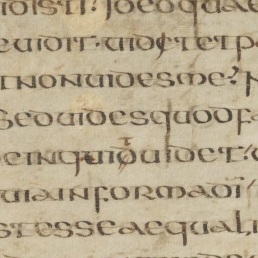 idisti? ideo quae
euidit· uidet et pa
t non uides me? N
sed uides quod fa
e inquid uidet?
uia in forma di
st esse aequali